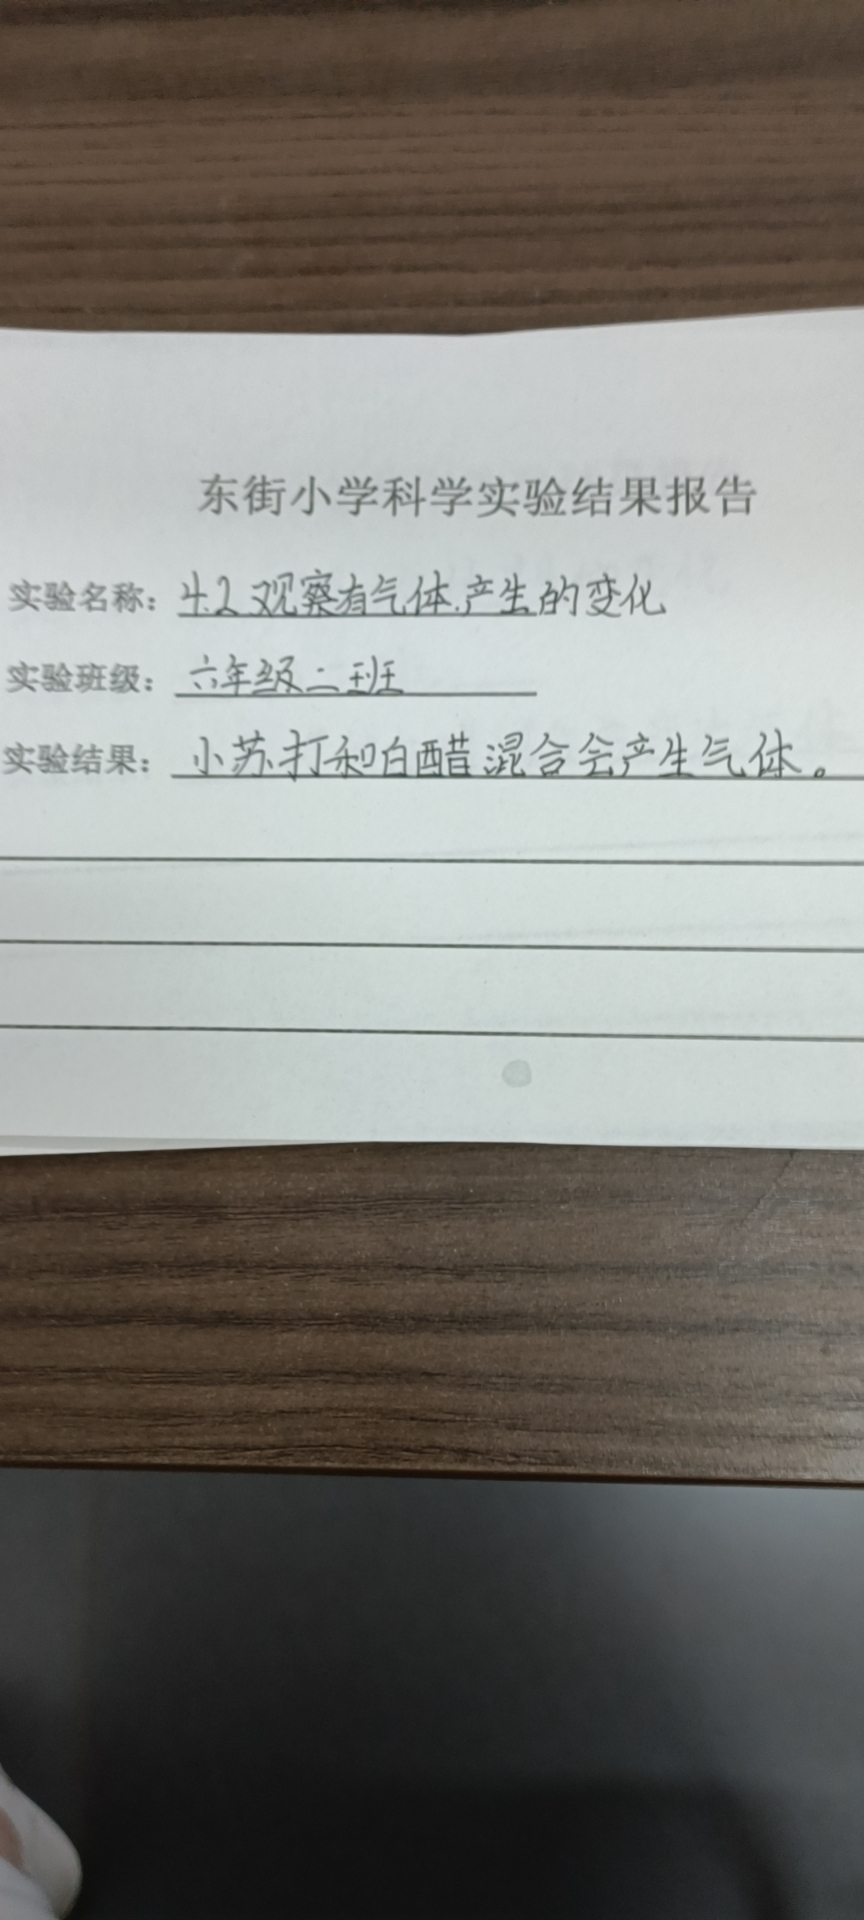 东街小学科学实验结果报告
实验名称：4.2 观察有气体产生的变化
实验班级：六年级二班
实验结果：小苏打和白醋混合会产生气体。